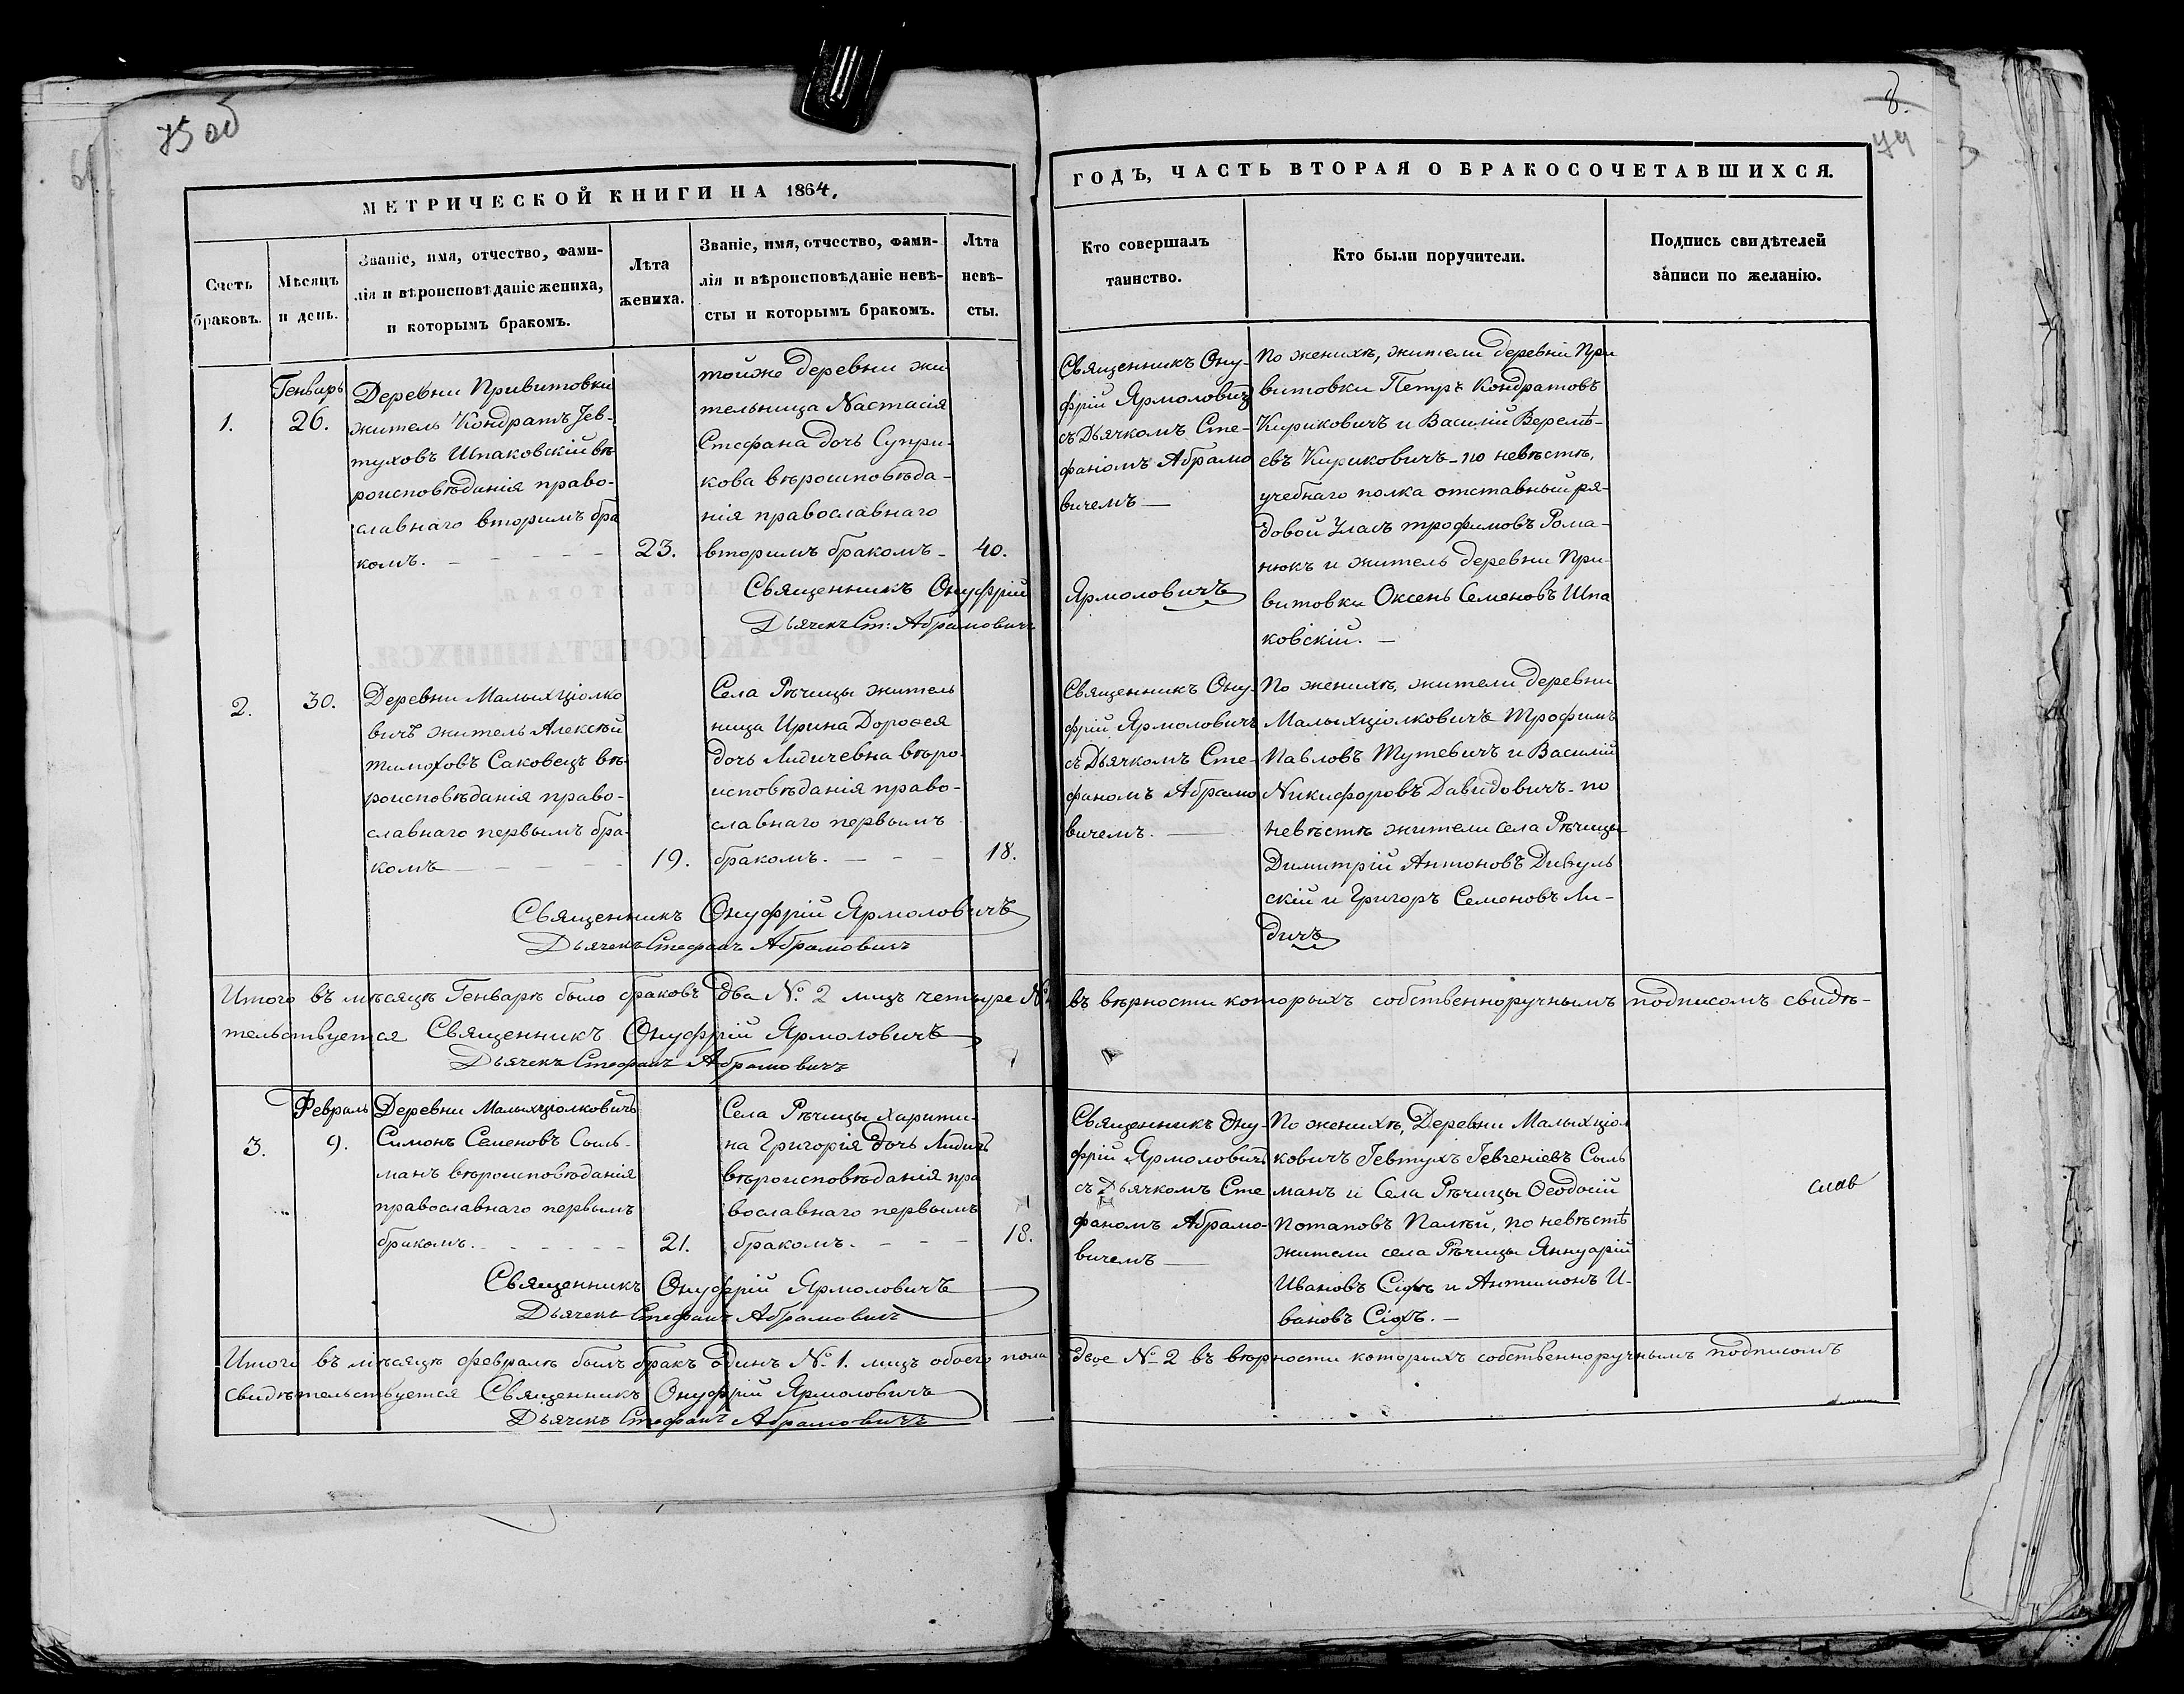 75 об
8.
79
МЕТРИЧЕСКОЙ КНИГИ НА 1864.
ГОДЪ, ЧАСТЬ ВТОРАЯ О БРАКОСОЧЕТАВШИХСЯ.
Счетъ
браковъ.
Мѣсяцъ
и день.
Званіе, имя, отчество, фами-
лія и вѣроисповѣданіе жениха,
и которымъ бракомъ.
Лѣта
жениха.
Званіе, имя, отчество, фами-
лія и вѣроисповѣданіе невѣ-
сты и которымъ бракомъ.
Лѣта
невѣ-
сты.
Кто совершалъ
таинство.
Кто были поручители.
Подпись свидѣтелей
записи по желанію.
1.
Генварь
26.
Деревни Привитовки
житель Кондратъ Іев-
туховъ Шпаковскій вѣ
роисповѣданія право-
славнаго вторимъ бра
комъ.
23.
тойже деревни жи
тельница Настасія
Стефана дочь Супри-
кова вѣроисповѣда-
нія православнаго
вторимъ бракомъ -
40.
Священникъ Онуфрій
Ярмоловичъ
Дьячекъ Ст: Абрамовичъ
Священникъ Ону-
фрій Ярмоловичъ
съ Дьячкомъ Сте-
фаніомъ Абрамо
вичемъ —
По женихѣ, жители деревни При
витовки Петръ Кондратовъ
Кириковичъ и Василій Веремѣ-
евъ Кириковичъ - по невѣстѣ,
учебнаго полка отставный ря-
довой Уласъ трофимовъ Рома-
нюкъ и житель деревни При-
витовки Оксень Семеновъ Шпа
ковскій. —
2.
30.
Деревни Малыхціолко
вичъ житель Алексѣй
тимоховъ Саковецъ вѣ-
роисповѣданія право-
славнаго первымъ бра-
комъ
19.
Села Рѣчицы житель
ница Ирина Дорофея
дочь Лидичевна вѣро-
исповѣданія право-
славнаго первымъ
бракомъ.
18.
Священникъ Онуфрій Ярмоловичъ
Дьячекъ Стефанъ Абрамовичъ
Священникъ Ону-
фрій Ярмоловичъ
съ Дьячкомъ Сте-
фаномъ Абрамо
вичемъ.
По женихѣ, жители деревни
Малыхціолковичъ Трофимъ
Павловъ Тутевичъ и Василій
Никифоровъ Давидовичъ - по
невѣстѣ жители села Рѣчицы
Димитрій Антоновъ Дивуль
скій и Григоръ Семеновъ Ли-
дичъ
Итого въ мѣсяцѣ Генварѣ было браковъ два №. 2 лицъ четыре № въ вѣрности которыхъ собственноручнымъ подписомъ свидѣ-
тельствуется Священникъ Онуфрій Ярмоловичъ
Дьячекъ Стефанъ Абрамовичъ
3.
Февраль
9.
Деревни Малыхціолковичъ
Симонъ Семеновъ Соль-
манъ вѣроисповѣданія
православнаго первымъ
бракомъ.
21.
Села Рѣчицы Харити-
на Григорія дочь Лидичъ
вѣроисповѣданія пра
вославнаго первымъ
бракомъ.
18.
Священникъ Онуфрій Ярмоловичъ
Дьячекъ Стефанъ Абрамовичъ
Священникъ Ону-
фрій Ярмоловичъ
съ Дьячкомъ Сте
фаномъ Абрамо-
вичемъ —
По женихѣ, Деревни Малыхціол
ковичъ Іевтухъ Іевгеніевъ Соль
манъ и Села Рѣчицы Ѳеодосій
Потаповъ Палѣй, по невѣстѣ
жители села Рѣчицы Яннуарій
Ивановъ Сіфъ и Антимонъ И-
вановъ Сіфъ. —
Итого въ мѣсяцѣ февралѣ былъ бракъ одинъ №. 1. лицъ обоего пола двое № 2 въ вѣрности которыхъ собственноручнымъ подписомъ
свидѣтельствуется Священникъ Онуфрій Ярмоловичъ
Дьячекъ Стефанъ Абрамовичъ